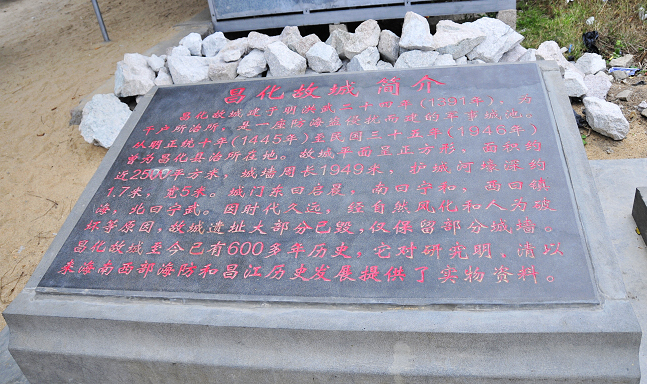 昌化故城 简介
昌化故城建于明洪武二十四年(1391年)，为
千户所治所，是一座防海盗侵扰而建的军事城池；
从明正统十年(1445年)至民国三十五年(1946年)
曾为昌化县治所在地。故城平面呈正方形，面积约
近2500年方米，城墙周长1949米，护城河壕深约
1.7米，宽5米。城门东曰启晨，南曰宁和，西曰镇
海，北曰宁武。因时代久远，经自然风化和人为破
坏等原因，故城遗址大部分已毁，仅保留部分城墙。
昌化故城至今已有600多年历史，它对研究明、清以
来海南西部海防和昌江历史发展提供了实物资料。